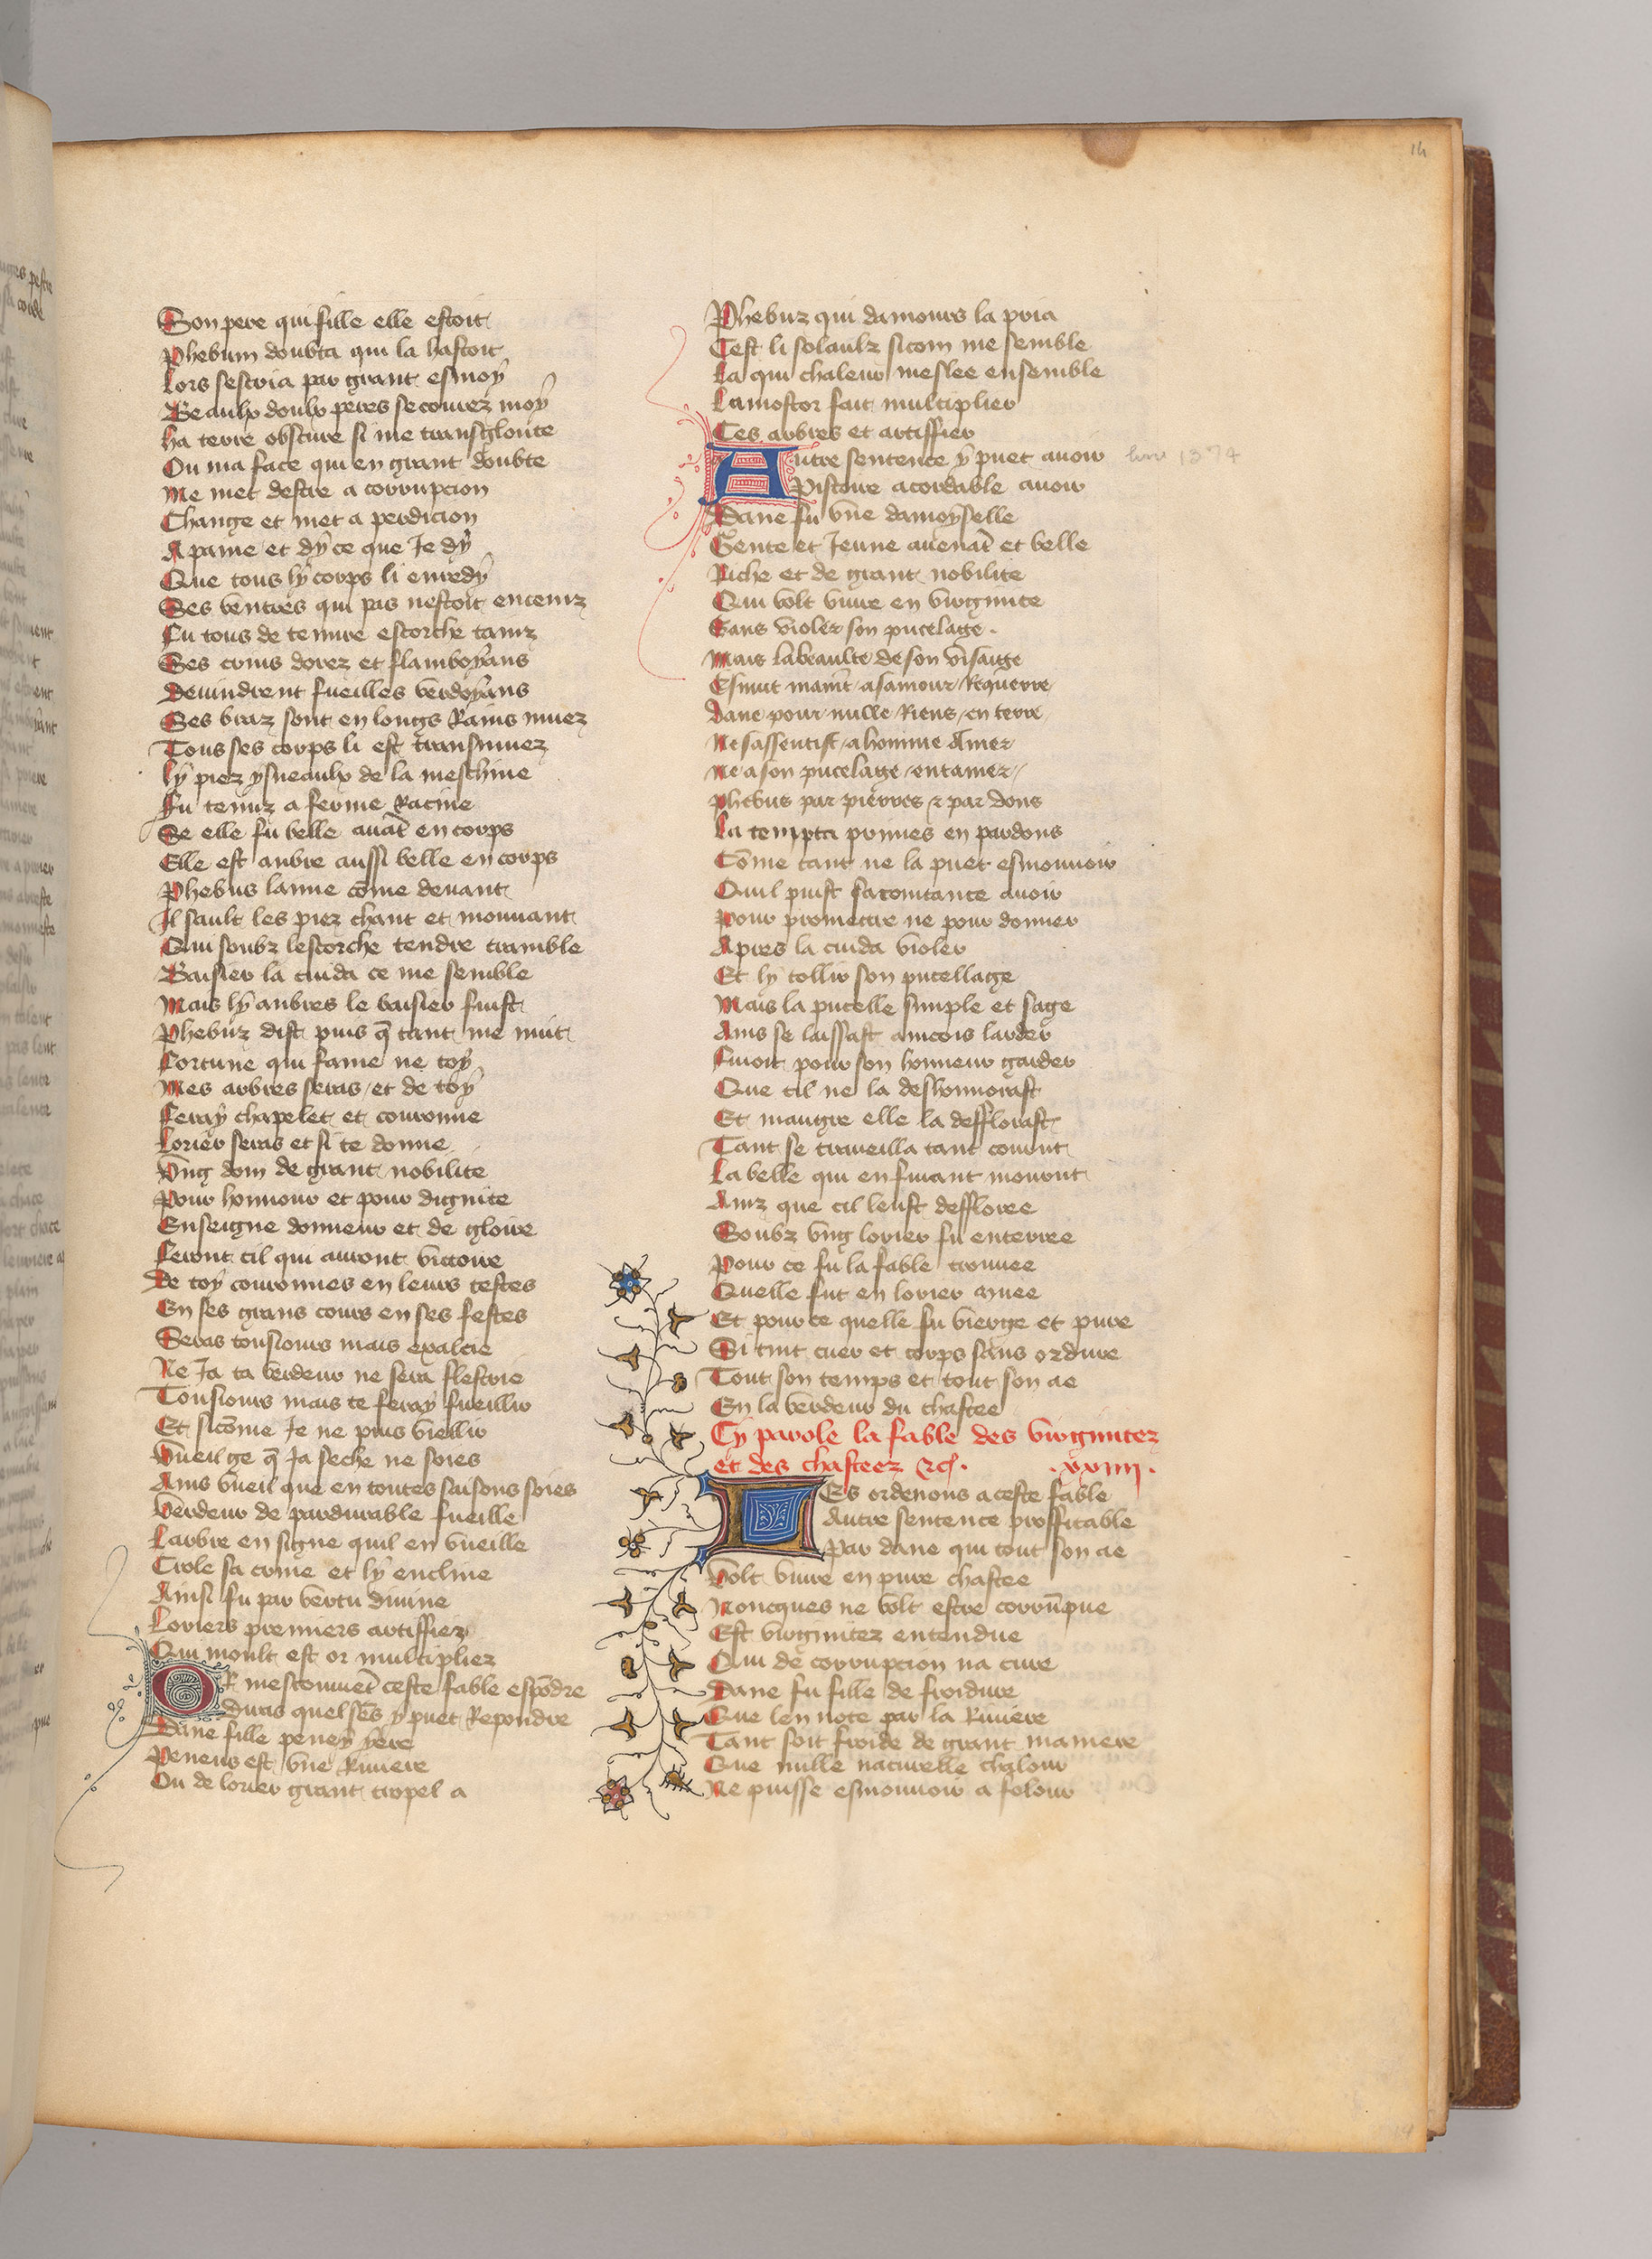 14
Son pere qui fille elle estoit
Phebum doubta qui la hastoit
Lors sescria par grant esmoÿ
Beaulx doulx peres secourez moÿ
ha terre obscure si me transgloute
Ou ma face qui en grant doubte
Me met destre a corrupcion
Change et met a perdicion
A paine et dÿ ce que Je dÿ
Que tous lÿ corps li enredÿ
Ses ventres qui pas nestoit encainz
Fu tous de tenure escorche tainz
Ses crins dorez et flamboÿans
Devindrent fueilles verdoÿans
Ses braz sont en longs Rains muez
Tous ses corps li est transmuez
Lÿ piez ÿsneaulx de la meschine
Fu tenuz a ferme Racine
Se elle fu belle avāt en corps
Elle est aubre aussi belle en corps
Phebus laime cōme devant
Il sault les piez chant et mouvant
Qui soubz lescorche tendre tramble
Baisier la cuida ce me semble
Mais lÿ aubres le baisier fuist
Phebuz dist puis q̄ tant me nuit
Fortune qui fame ne toÿ
Mes arbres seras et de toÿ
Feraÿ chapelet et couronne
Lorier seras et si te donne
Vng dom de grant nobilite
Pour honnour et pour dignite
Enseigne donneur et de gloire
Feront cil qui auront victoire
De toÿ couronnes en leurs testes
En ses grans cours en ses festes
Seras tousiours mais exalcie
Ne Ja ta verdeur ne sera flestrie
Tousiours mais te feraÿ fueillir
Et sicōme Je ne puis vieillir
Vueil ge q̄ Ja seche ne soies
Ains vueil que en toutes saisons soies
Verdeur de pardurable fueille
Larbre en signe quil en vueille
Crole sa cime et lÿ encline
Ainsi fu par vertu divine
Loriers premiers artiffiez
Qui moult est or multipliez
OR mestouuēt ceste fable espōdre
Duras quel sēs ÿ puet Repondre
Dane fille peneÿ ÿere
Peneus est vne Riuiere
Ou de lorier grant tropel a
Phebuz qui damours la pria
Cest li solaulz sicom me semble
La qui chaleur meslee ensemble
Lamostor fait multiplier
Ces arbres et artiffier
Autre sentence ÿ puet auoir
Histoire acordable auoir
Dane fu vne damoÿselle
Gente et Jeune auenāt et belle
Riche et de grant nobilite
Qui volt viure en virginite
Sans violer son pucelage.
Mais la beaulte de son visaige
Esmut maint a samour Requerre
Dane pour nulle Riens en terre
Ne sassentist a homme Amer
Ne a son pucelage entamer
Phebus par pierres et par dons
La tempta primes en pardons
Cōme tant ne la puet esmouuoir
Quil puist sacointance auoir
Pour promectre ne pour donner
Apres la cuida violer
Et lÿ tollir son pucellage
Mais la pucelle simple et sage
Ains se laissast aincois larder
Fuioit pour son honneur garder
Que cil ne la deshonnorast
Et maugre elle la defflorast
Tant se traueilla tant courut
La belle qui en fuiant mourut
Ainz que cil leust deffloree
Soubz vng lorier fu enterree
Pour ce fu la fable trouuee
Quelle fut en lorier muee
Et pour ce quelle fu vierge et pure
Si tint cuer et corps sans ordure
Tout son temps et tout son ae
En la verdeur du chastee
Cÿ parole la fable des virginitez
et des chasteez &c. .xxiiii.
Les ordenons a ceste fable
Autre sentence proffitable
Par dane qui tout son ae
Volt viure en pure chastee
Noncques ne volt estre corrūpue
Est virginitez entendue
Qui de corrupcion na cure
Dane fu fille de froidure
Que len note par la Riuiere
Tant soit froide de grant maniere
Que nulle naturelle chalour
Ne puisse esmouuoir a folour